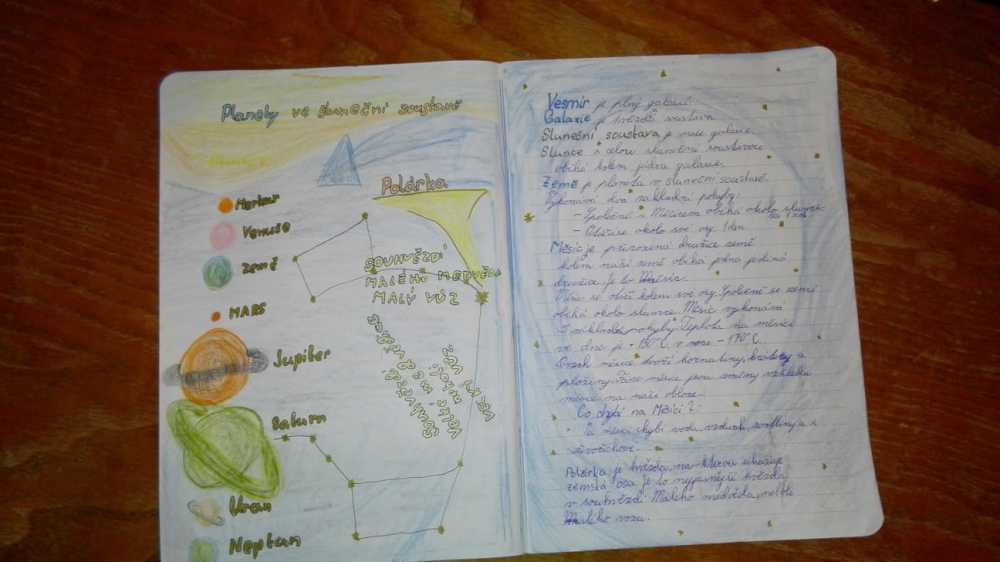 Planety ve sluneční soustavě
Polárka
Merkur
Venuše
Země
MARS
Jupiter
Saturn
Uran
Neptun
SOUHVĚZDÍ
MALÉHO MEDVĚDA
MALÝ VŮZ
Vesmír je plný galaxií.
Galaxie je hvězdná soustava.
Sluneční soustava je naše galaxie.
Slunce s celou sluneční soustavou
obíhá kolem jádra galaxie.
Země je planeta v sluneční soustavě.
Vykonává dva základní pohyby:
- Společně s Měsícem obíhá okolo slunce
za 1 rok
- Otáčuje okolo své osy 1 den
Měsíc je přirozená družice země
kolem naší země obíhá pouze jediná
družice je to Měsíc.
se otáčí kolem své osy. Společně se zemí
obíhá okolo slunce. Měsíc vykonává
3 základní pohyby. Teplota na měsíci
ve dne je 130°C v noci - 170°C.
Povrch měsíce tvoří hornatiny, krátery a
Fáze měsíce jsou změny vzhledu
měsíce na naší obloze.
Co chybí na Měsíci?:
Na měsíci chybí voda, vzduch, rostliny a
živočichové.
Polárka je hvězda, na kterou ukazuje
zemská osa je to nejjasnější hvězda
v souhvězdí Malého medvěda, neboli
Malého vozu.